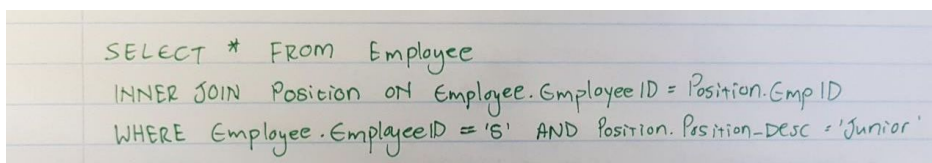 SELECT * FROM Employee
INNER JOIN Position ON Employee.EmployeeID = Position.EmpID
WHERE Employee.EmployeeID = '5' AND Position.Position_Desc = 'Junior'